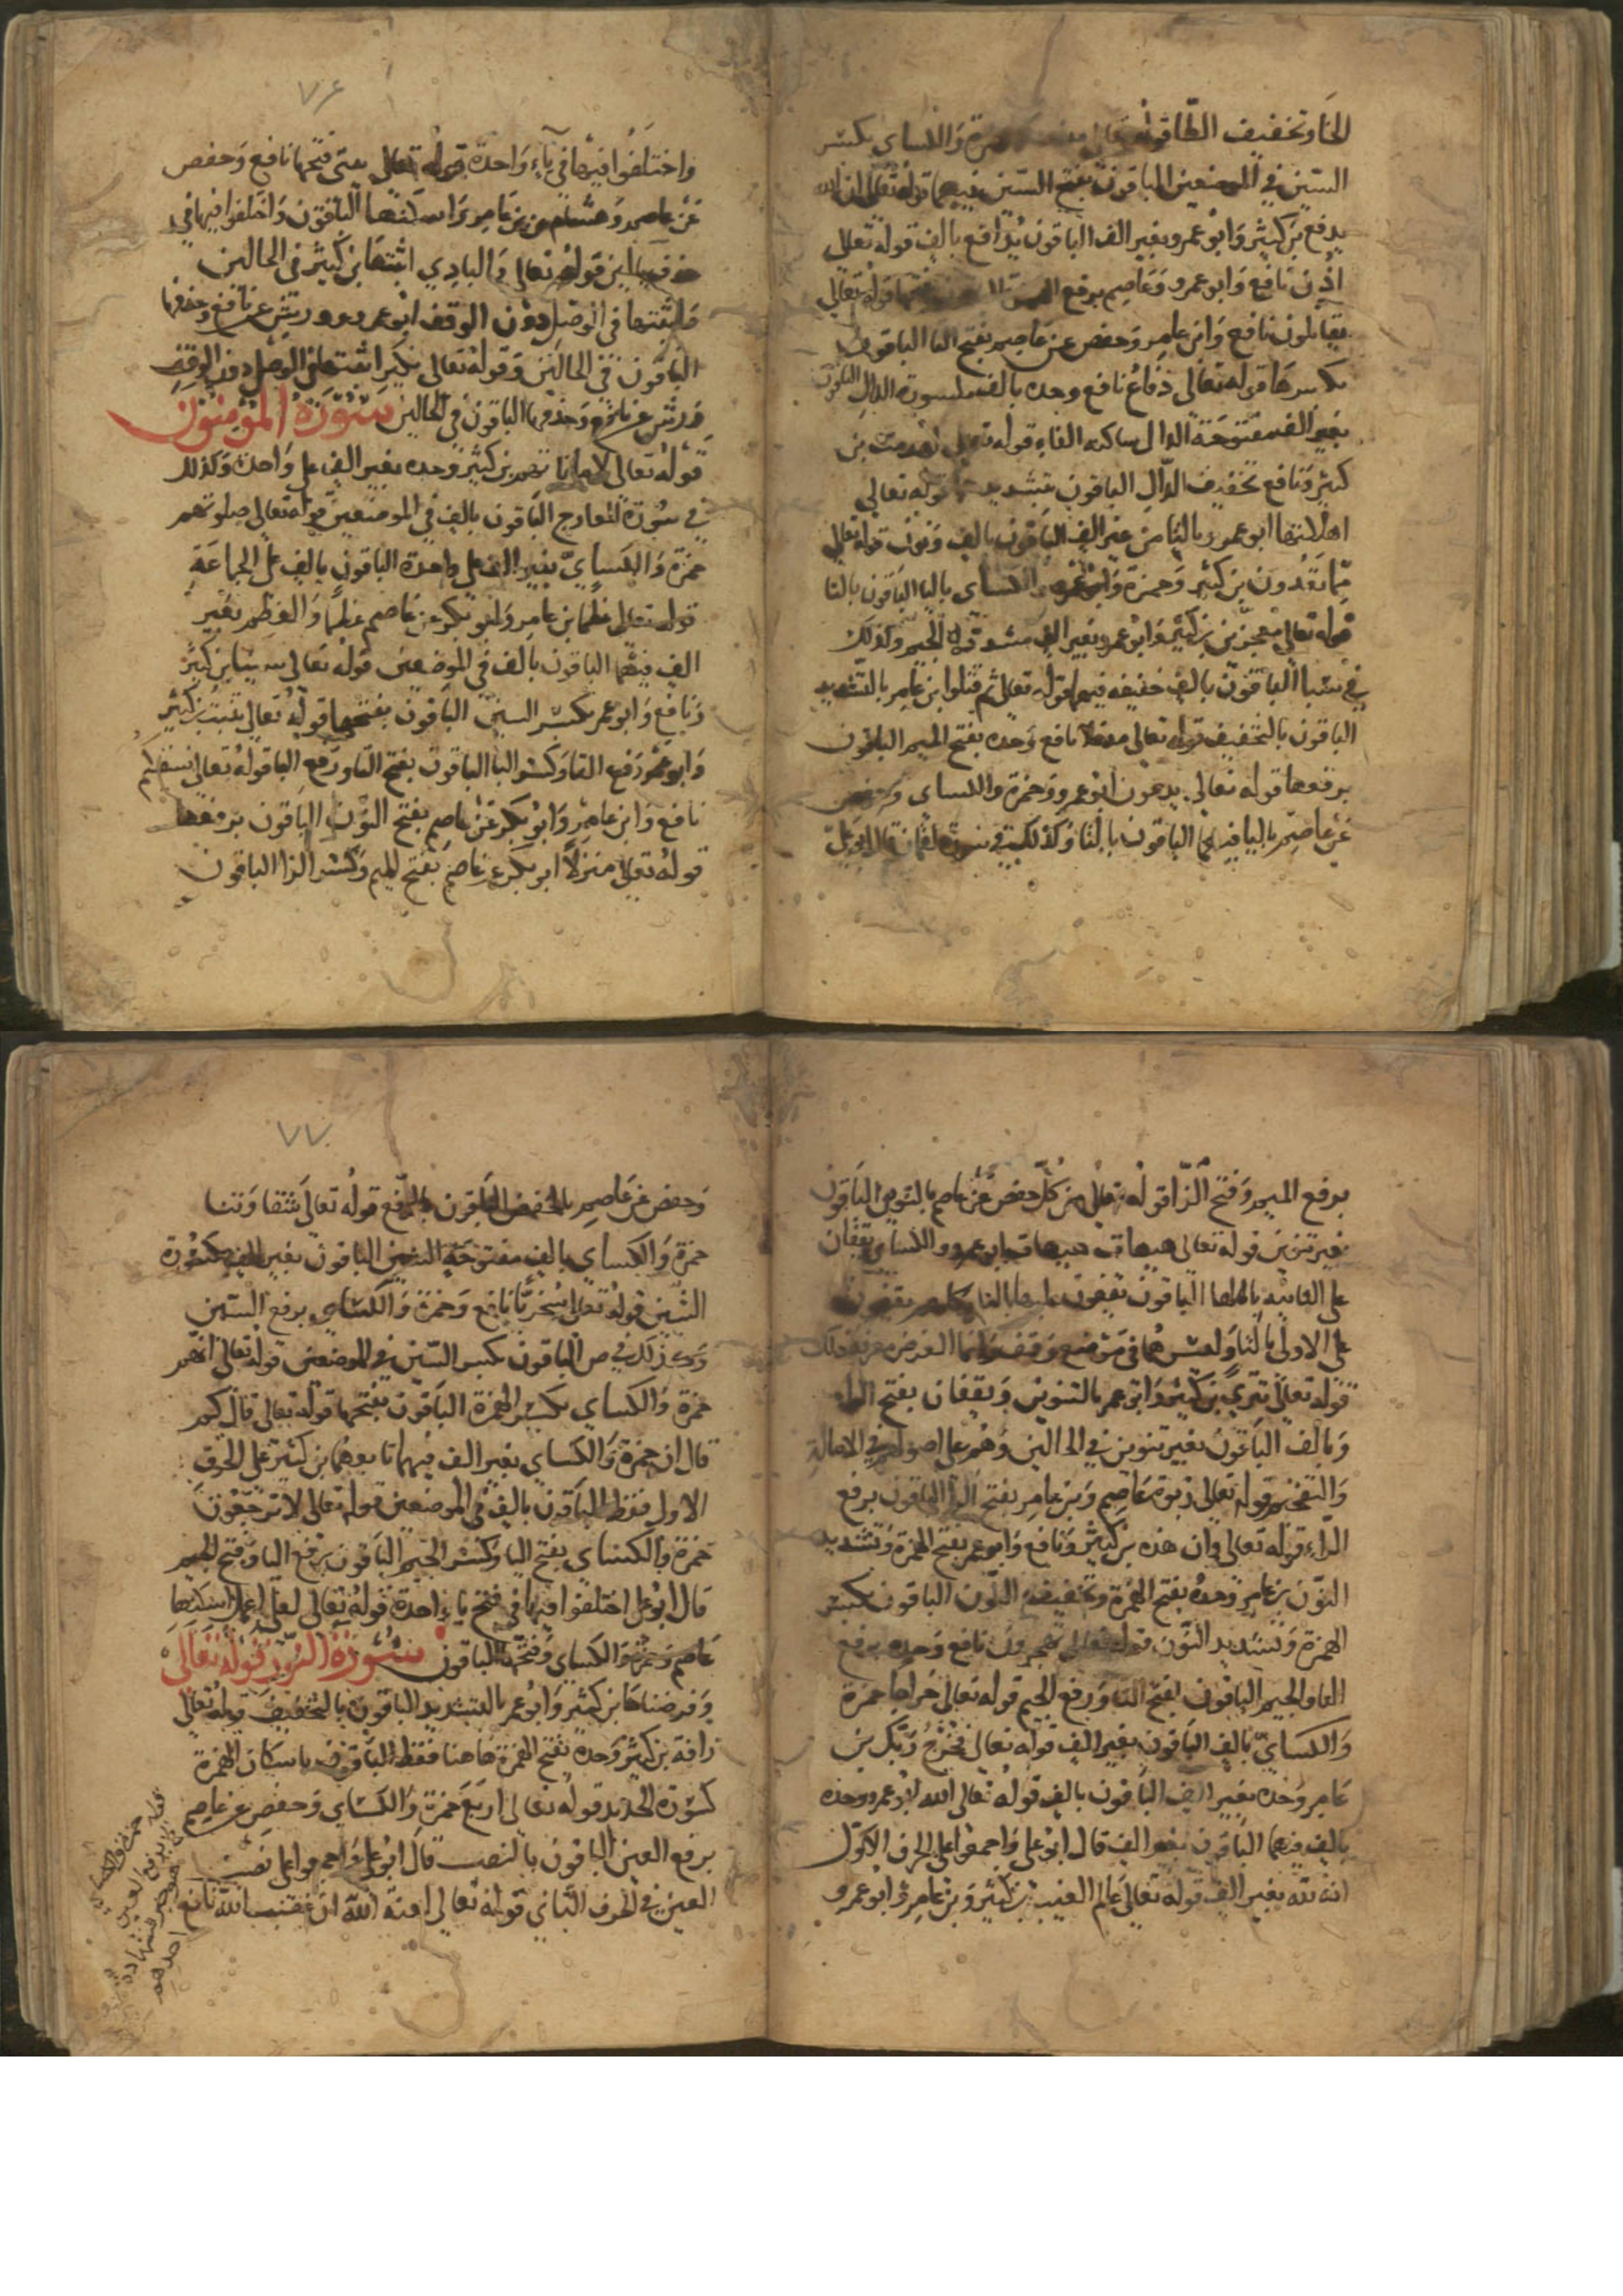 الخا وتخفيف الطا قوله تعالى حمزة والكساي بكسر
السين في الموضعين الباقون بفتح السين فيهما قوله تعالى ان الله
يدفع بن كثير وابو عمرو بغير الف الباقون يدافع بالف قوله تعالى
اذن نافع وابو عمرو وعاصم برفع قوله تعالى
يقاتلون نافع وابن عامر وحفص عن عاصم بفتح التا الباقون
بكسرها قوله تعالى دفاع نافع وحده بالف مكسورة الدال الباقون
بغير الف مفتوحة الدال ساكنه الفاء قوله تعالى لهدمت بن
كثير ونافع بتخفيف الدال الباقون بتشديد قوله تعالى
اهلكتها ابو عمرو بالتا من غير الف الباقون بالف ونون قوله تعالى
مما تعدون بن كثير وحمزة والكساي باليا الباقون بالتا
قوله تعالى معجزين بن كثير وابو عمرو بغير الف مشددة الجيم وكذلك
في سبا الباقون بالف خفيفه فيهما قوله تعالى ثم قتلوا بن عامر بالتشديد
الباقون بالتخفيف قوله تعالى مدخلا نافع وحده بفتح الميم الباقون
برفعها قوله تعالى يدعون ابو عمرو وحمزة والكساي وحفص
عن عاصم باليا فيهما الباقون بالتا وكذلك في سورة لقمان قال ابو علي
٧٦
واختلفوا فيها في ياء واحدة قوله تعالى بيتي فتحها نافع وحفص
عن عاصم وهشام عن بن عامر واسكنها الباقون واختلفوا فيها في
حذف ياين قوله تعالى والبادي اثبتها بن كثير في الحالين
واثبتها في الوصل دون الوقف ابو عمرو وورش عن نافع وحذفها
الباقون في الحالين وقوله تعالى نكير اثبتها في الوصل دون الوقف
ورش عن نافع وحذفها الباقون في الحالين سورة المؤمنون
قوله تعالى لاماناتهم بن كثير وحده بغير الف على واحدة وكذلك
في سورة المعارج الباقون بالف في الموضعين قوله تعالى صلوتهم
حمزة والكساي بغير الف على واحدة الباقون بالف على الجماعة
قوله تعالى عظما بن عامر وابو بكر عن عاصم عظما والعظم بغير
الف فيهما الباقون بالف في الموضعين قوله تعالى سيناء بن كثير
ونافع وابو عمرو بكسر السين الباقون بفتحها قوله تعالى تنبت بن كثير
وابو عمرو برفع التا وكسر البا الباقون بفتح التا ورفع البا قوله تعالى نسقيكم
نافع وابن عامر وابو بكر عن عاصم بفتح النون الباقون برفعها
قوله تعالى منزلا ابو بكر عن عاصم بفتح الميم وكسر الزا الباقون
برفع الميم وفتح الزا قوله تعالى من كل حفص عن عاصم بالتنوين الباقون
بغير تنوين قوله تعالى هيهات هيهات ابو عمرو والكساي يقفان
على الثانيه بالها الباقون يقفون عليها بالتا وكلهم يقفون
على الاولى بالتا وليس هما في موضع وقف وانما الغرض معرفة ذلك
قوله تعالى تترى بن كثير وابو عمرو بالتنوين ويقفان بفتح الراء
وبالف الباقون بغير تنوين في الحالين وهم على اصولهم في الامالة
والتفخيم قوله تعالى ربوة عاصم وبن عامر بفتح الراء الباقون برفع
الراء قوله تعالى وان هذه بن كثير ونافع وابو عمرو بفتح الهمزة وتشديد
النون بن عامر وحده بفتح الهمزة وتخفيف النون الباقون بكسر
الهمزة وتشديد النون قوله تعالى تهجرون نافع وحده برفع
التا والجيم الباقون بفتح التا ورفع الجيم قوله تعالى خراجا حمزة
والكساي بالف الباقون بغير الف قوله تعالى فخرج ربك بن
عامر وحده بغير الف الباقون بالف قوله تعالى الله ابو عمرو وحده
بالف فيهما الباقون بغير الف قال ابو علي واجمعوا على الحرف الاول
انه لله بغير الف قوله تعالى عالم الغيب بن كثير وبن عامر وابو عمرو
٧٧
وحفص عن عاصم بالخفض الباقون بالرفع قوله تعالى شقاوتنا
حمزة والكساي بالف مفتوحة الشين الباقون بغير الف مكسورة
الشين قوله تعالى سخريا نافع وحمزة والكساي برفع السين
وكذلك في ص الباقون بكسر السين في الموضعين قوله تعالى انهم
حمزة والكساي بكسر الهمزة الباقون بفتحها قوله تعالى قال كم
قال ان حمزة والكساي بغير الف فيهما تابعهما بن كثير على الحرف
الاول فقط الباقون بالف في الموضعين قوله تعالى لا ترجعون
حمزة والكساي بفتح التا وكسر الجيم الباقون برفع التا وفتح الجيم
قال ابو علي اختلفوا فيها في فتح ياء واحدة قوله تعالى لعلي اعمل اسكنها
عاصم وحمزة والكساي وفتحها الباقون سورة النور قوله تعالى
وفرضناها بن كثير وابو عمرو بالتشديد الباقون بالتخفيف قوله تعالى
رافة بن كثير وحده بفتح الهمزة هاهنا فقط الباقون باسكان الهمزة
كسورة الحديد قوله تعالى اربع حمزة والكساي وحفص عن عاصم
برفع العين الباقون بالنصب قال ابو علي واجمعوا على نصب
العين في الحرف الثاني قوله تعالى لعنة الله ان غضب الله نافع